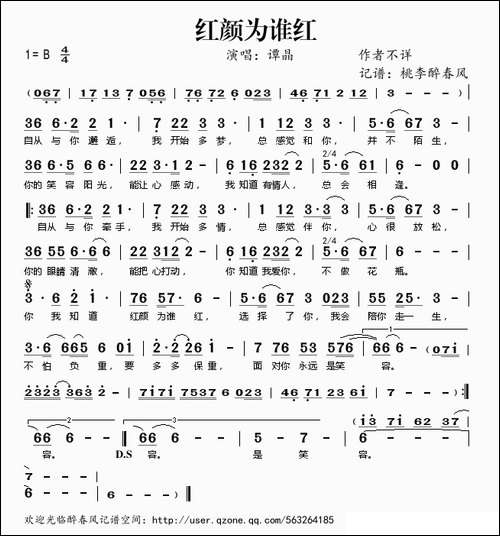 红颜为谁红
1=B 4/4 演唱:谭晶 作者不详
记谱:桃李醉春风
(067 | 17 13 7 056 | 76 72 6 023 | 46 71 2 12 | 3 - - -)
36 6·2 2 1· | 7 22 3 3 - | 36 22 1 2·3 3 | 5·67 3 - -
自从与你邂逅, 我开始多梦, 总感觉和你, 并不陌生,
36 6·5 6 6· | 22 3·1 2 - | 6 16 232 2 | 2/4 5·6 61 | 6 - 0 0
你的笑容阳光, 能让心感动, 我知道有情人, 总会相逢。
36 6·2 2 1· | 7 22 3 3 - | 36 22 1 2 3·3 3 | 5·67 3 - -
自从与你牵手, 我开始多情, 总感觉伴你, 心很放松,
36 55 5·6 6 | 22 3·1 2 - | 6 16 232 2 | 2/4 5·6 61 | 6 - - -
你的眼睛清澈, 能把心打动, 你知道我爱你, 不做花瓶。
3· 6 2 1· | 76 57 6 - | 5·6 67 3 023 | 55 25· 3 -
你我知道 红颜为谁红, 选择了你,我会 陪你走一生,
3·6 665 6 01 | 2·3 2 2 - | 37 6 53 576 | 66 6 - (071
不怕负重,要 多多保重, 面对你永远是笑 容。
2323 2323 3 - | 7171 7537 6 - | 46 71 23 61 | 7 - - -) :
2 3 (13 71 62 37
66 6 - - D.S 66 6 - - | 5 - 7 - | 6 - - -
容。 容。 是笑 容。
7 - - -
6 - - - | 6 - - -)
欢迎光临醉春风记谱空间:http://user.qzone.qq.com/563264185